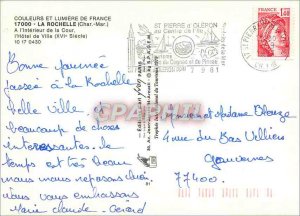 COULEURS ET LUMIÈRE DE FRANCE
17000 - LA ROCHELLE (Char.-Mar.)
A l'Intérieur de la Cour,
l'Hôtel de Ville (XVIe Siècle)
10 17 0430
ST PIERRE d'OLERON
au Centre de l'Ile
7 9 8 1
1,60
Bonne journée
passée à la Rochelle
Belle Ville
beaucoup de choses
intéressantes. le
temps est très beau
nous nous reposons chez
nous vous embrassons
Marie Claude - Gérard
Monsieur et Madame
4 rue du Bas Villiers
77400